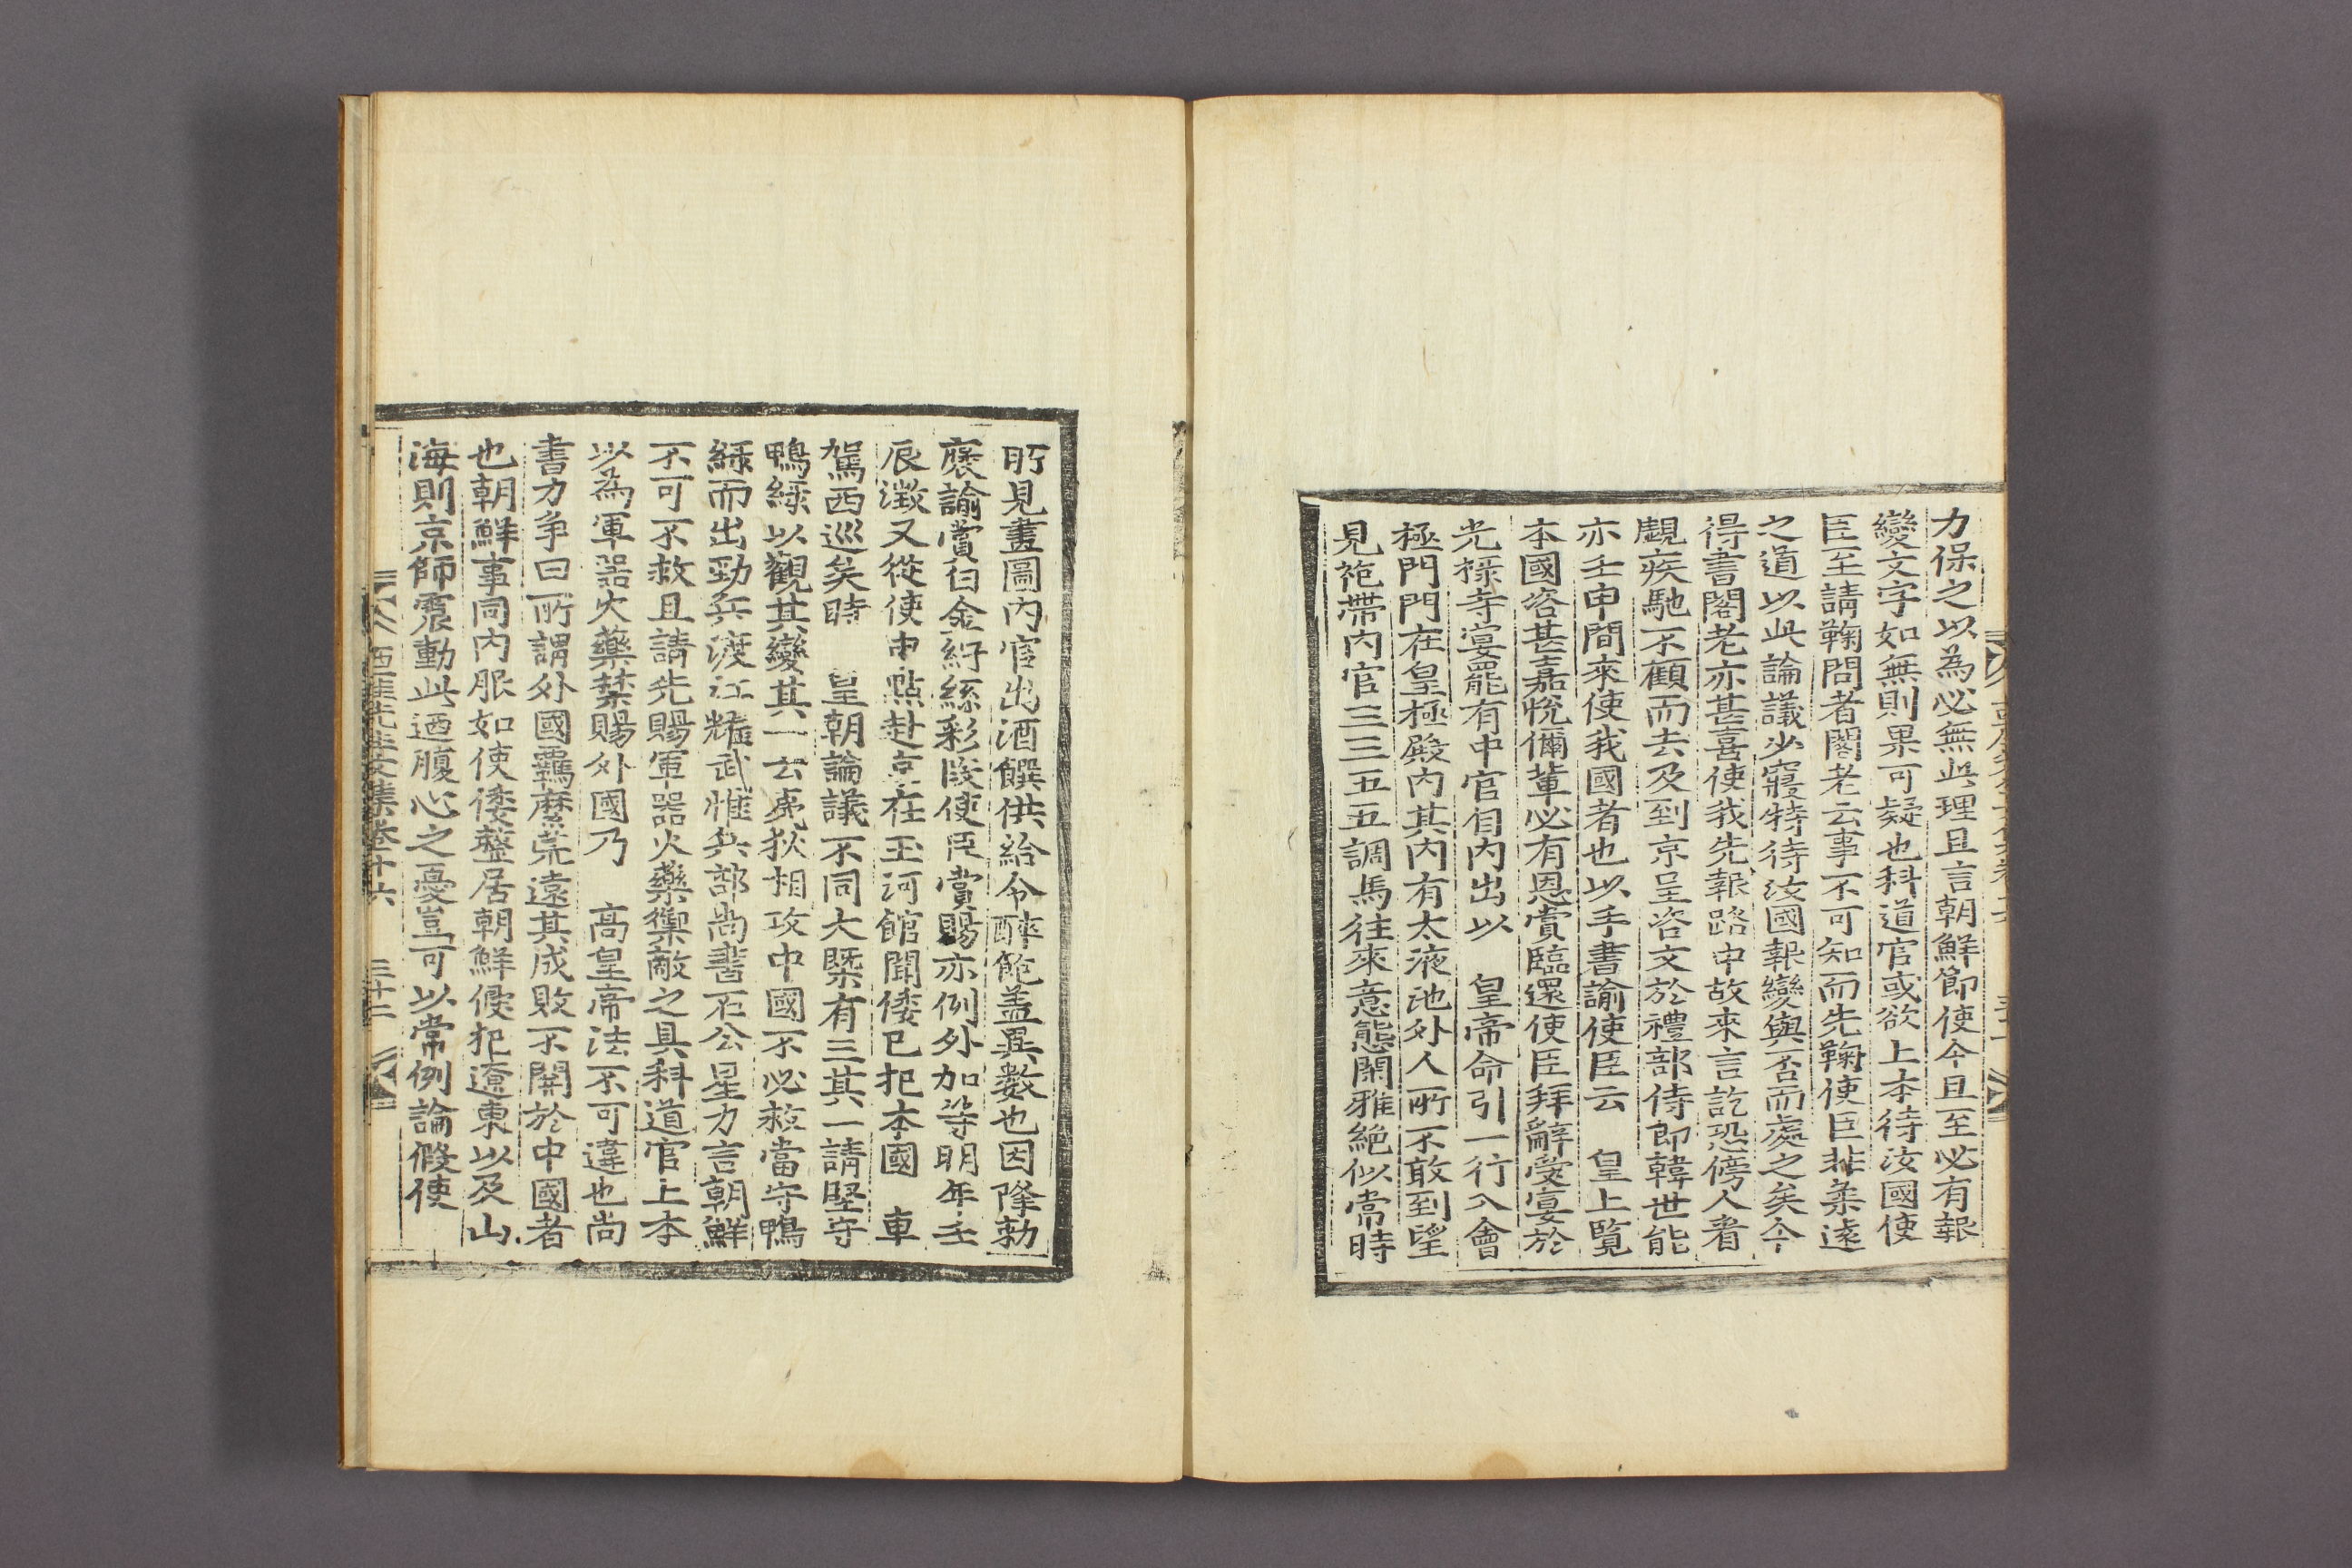 力保之以為必無此理且言朝鮮節使今且至必有報
變文字如無則果可疑也科道官或欲上本待汝國使
臣至請鞠問者閣老云事不可知而先鞠使臣非柔遠
之道以此論議少寢特待汝國報變與否而處之矣今
得書閣老亦甚喜使我先報路中故來言訖恐傍人看
覷疾馳不顧而去及到京呈咨文於禮部侍郎韓世能
亦壬申間來使我國者也以手書諭使臣云 皇上覽
本國咨甚嘉悅儞輩必有恩賞臨還使臣拜辭受宴於
光祿寺宴罷有中官自內出以 皇帝命引一行入會
極門門在皇極殿內其內有太液池外人所不敢到望
見袍帶內官三三五五調馬往來意態閑雅絶似常時
所見畫圖內官出酒饌供給令醉飽盖異數也因降勑
褒諭賞白金紵絲彩段使臣賞賜亦例外加等明年壬
辰澂又從使申點赴京在玉河館聞倭已犯本國 車
駕西巡矣時 皇朝論議不同大槩有三其一請堅守
鴨綠以觀其變其一云夷狄相攻中國不必救當守鴨
綠而出勁兵渡江耀武惟兵部尚書石公星力言朝鮮
不可不救且請先賜軍器火藥禦敵之具科道官上本
以為軍器火藥禁賜外國乃 高皇帝法不可違也尚
書力爭曰所謂外國羈縻荒遠其成敗不關於中國者
也朝鮮事同內服如使倭盤居朝鮮侵犯遼東以及山
海則京師震動此迺腹心之憂豈可以常例論假使
西厓先生文集卷十六 三十二